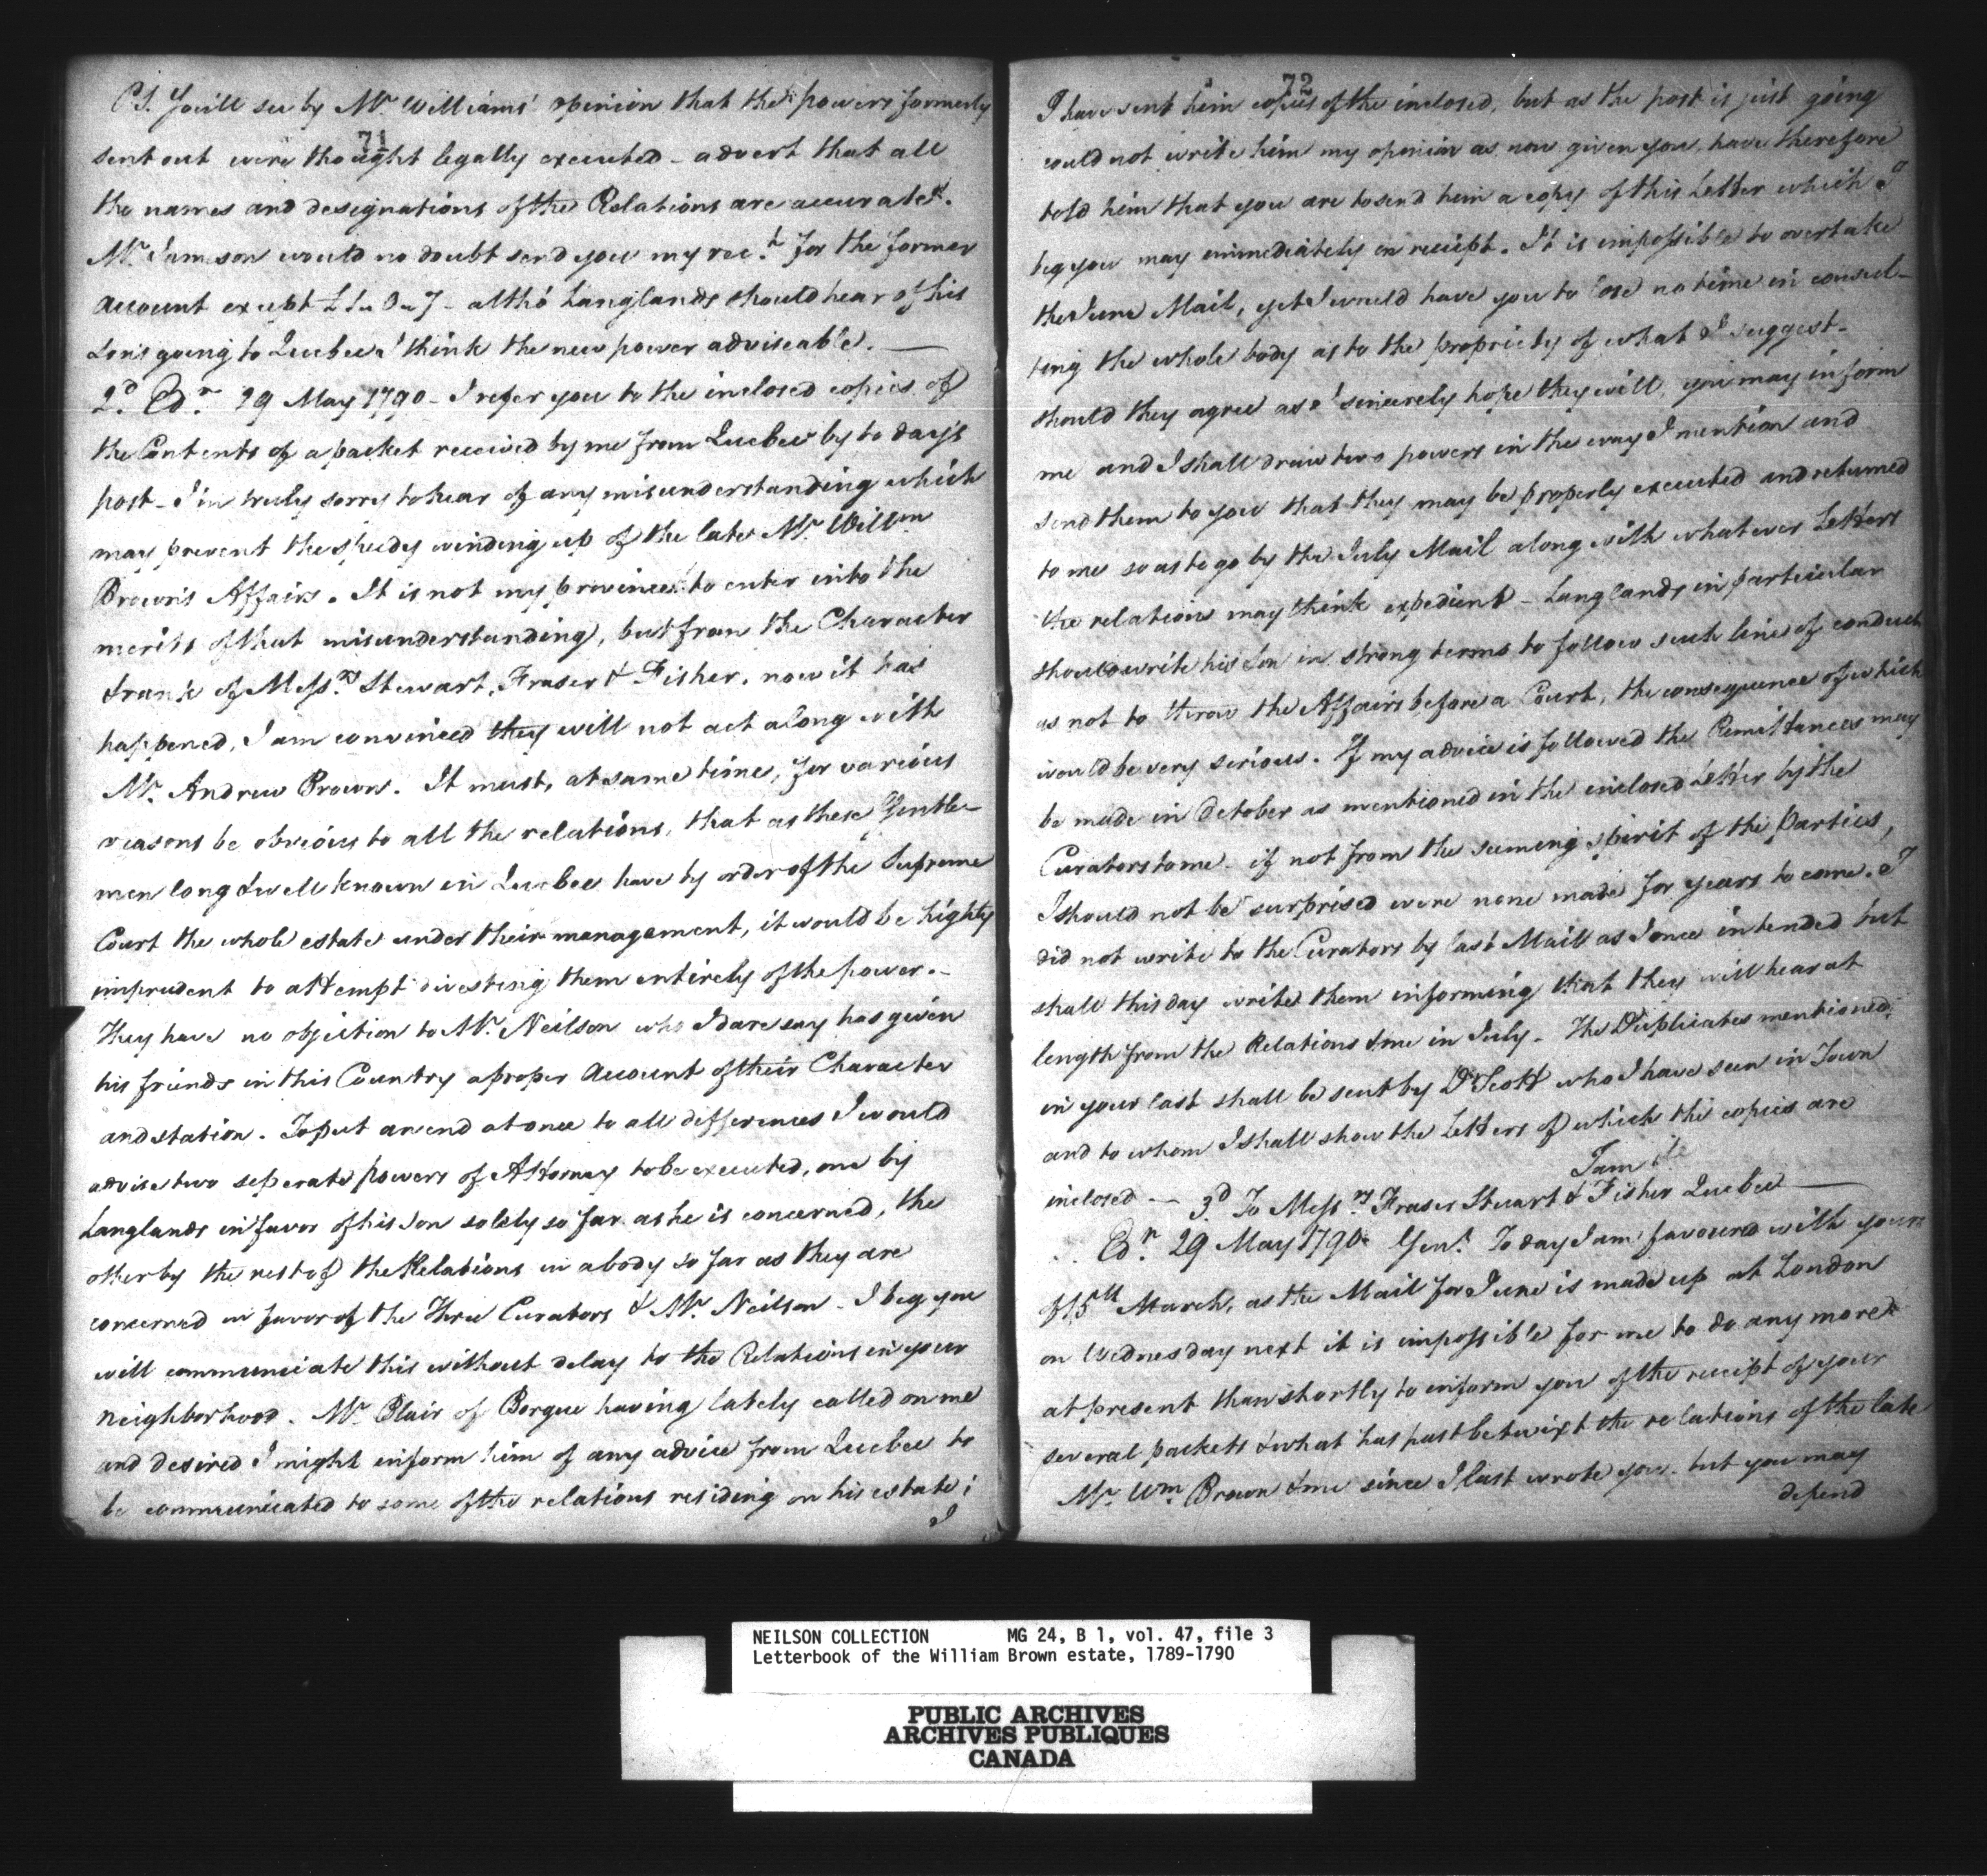 71
P.S. You'll see by Mr. Williams' opinion that the powers formerly
sent out were thought legally executed - advert that all
the names and designations of the Relations are accurate.
Mr. Jamson would no doubt send you my rect. for the former
account except £1..0..7 - altho' Langlands should hear of his
Son's going to Quebec I think the new power adviseable. —
2d. Edr. 29 May 1790 - I refer you to the inclosed copies of
the Contents of a packet received by me from Quebec by to days
post - I'm truly sorry to hear of any misunderstanding which
may prevent the speedy winding up of the late Mr. Willm
Brown's Affairs. It is not my province to enter into the
merits of that misunderstanding, but from the Character
& rank of Messrs. Stewart, Fraser & Fisher, now it has
happened, I am convinced they will not act along with
Mr. Andrew Brown. It must, at same time, for various
reasons be obvious to all the relations, that as these Gentle-
men long & well known in Quebec have by order of the Supreme
Court the whole estate under their management, it would be highly
imprudent to attempt divesting them entirely of the power. -
They have no objection to Mr. Neilson who I dare say has given
his friends in this Country a proper Account of their Character
and station. To put an end at once to all differences I would
advise two seperate powers of Attorney to be executed, one by
Langlands in favor of his Son solely so far as he is concerned, the
other by the rest of the Relations in a body so far as they are
concerned in favor of the Three Curators & Mr. Neilson - I beg you
will communicate this without delay to the Relations in your
neighborhood. Mr. Blair of Borgue having lately called on me
and desired I might inform him of any advice from Quebec to
be communicated to some of the relations residing on his estate;
I
72
I have sent him copies of the inclosed, but as the post is just going
could not write him my opinion as now given you, have therefore
told him that you are to send him a copy of this Letter which I
beg you may immediately on receipt. It is impossible to overtake
the June Mail, yet I would have you to lose no time in consul-
ting the whole body as to the propriety of what I suggest -
should they agree as I sincerely hope they will, you may inform
me and I shall draw two powers in the way I mention and
send them to you that they may be properly executed and returned
to me so as to go by the July Mail along with whatever Letters
the relations may think expedient - Langlands in particular
should write his Son in strong terms to follow such line of conduct
as not to throw the Affairs before a Court, the consequence of which
would be very serious. If my advice is followed the Remittances may
be made in October as mentioned in the inclosed Letter by the
Curators to me - if not from the seeming spirit of the Parties,
I should not be surprised were none made for years to come. I
did not write to the Curators by last Mail as I once intended but
shall this day write them informing that they will hear at
length from the Relations & me in July - The Duplicates mentioned
in your last shall be sent by Dr. Scott who I have seen in Town
and to whom I shall show the Letters of which the copies are
inclosed — I am &c
3d. To Messrs. Fraser Stuart & Fisher Quebec —
Edr. 29 May 1790 Gent. To day I am favoured with yours
of 15th March, as the Mail for June is made up at London
on Wednesday next it is impossible for me to do any more
at present than shortly to inform you of the receipt of your
several packets & what has past betwixt the relations of the late
Mr. Wm. Brown & me since I last wrote you - but you may
depend
NEILSON COLLECTION MG 24, B 1, vol. 47, file 3
Letterbook of the William Brown estate, 1789-1790
PUBLIC ARCHIVES
ARCHIVES PUBLIQUES
CANADA